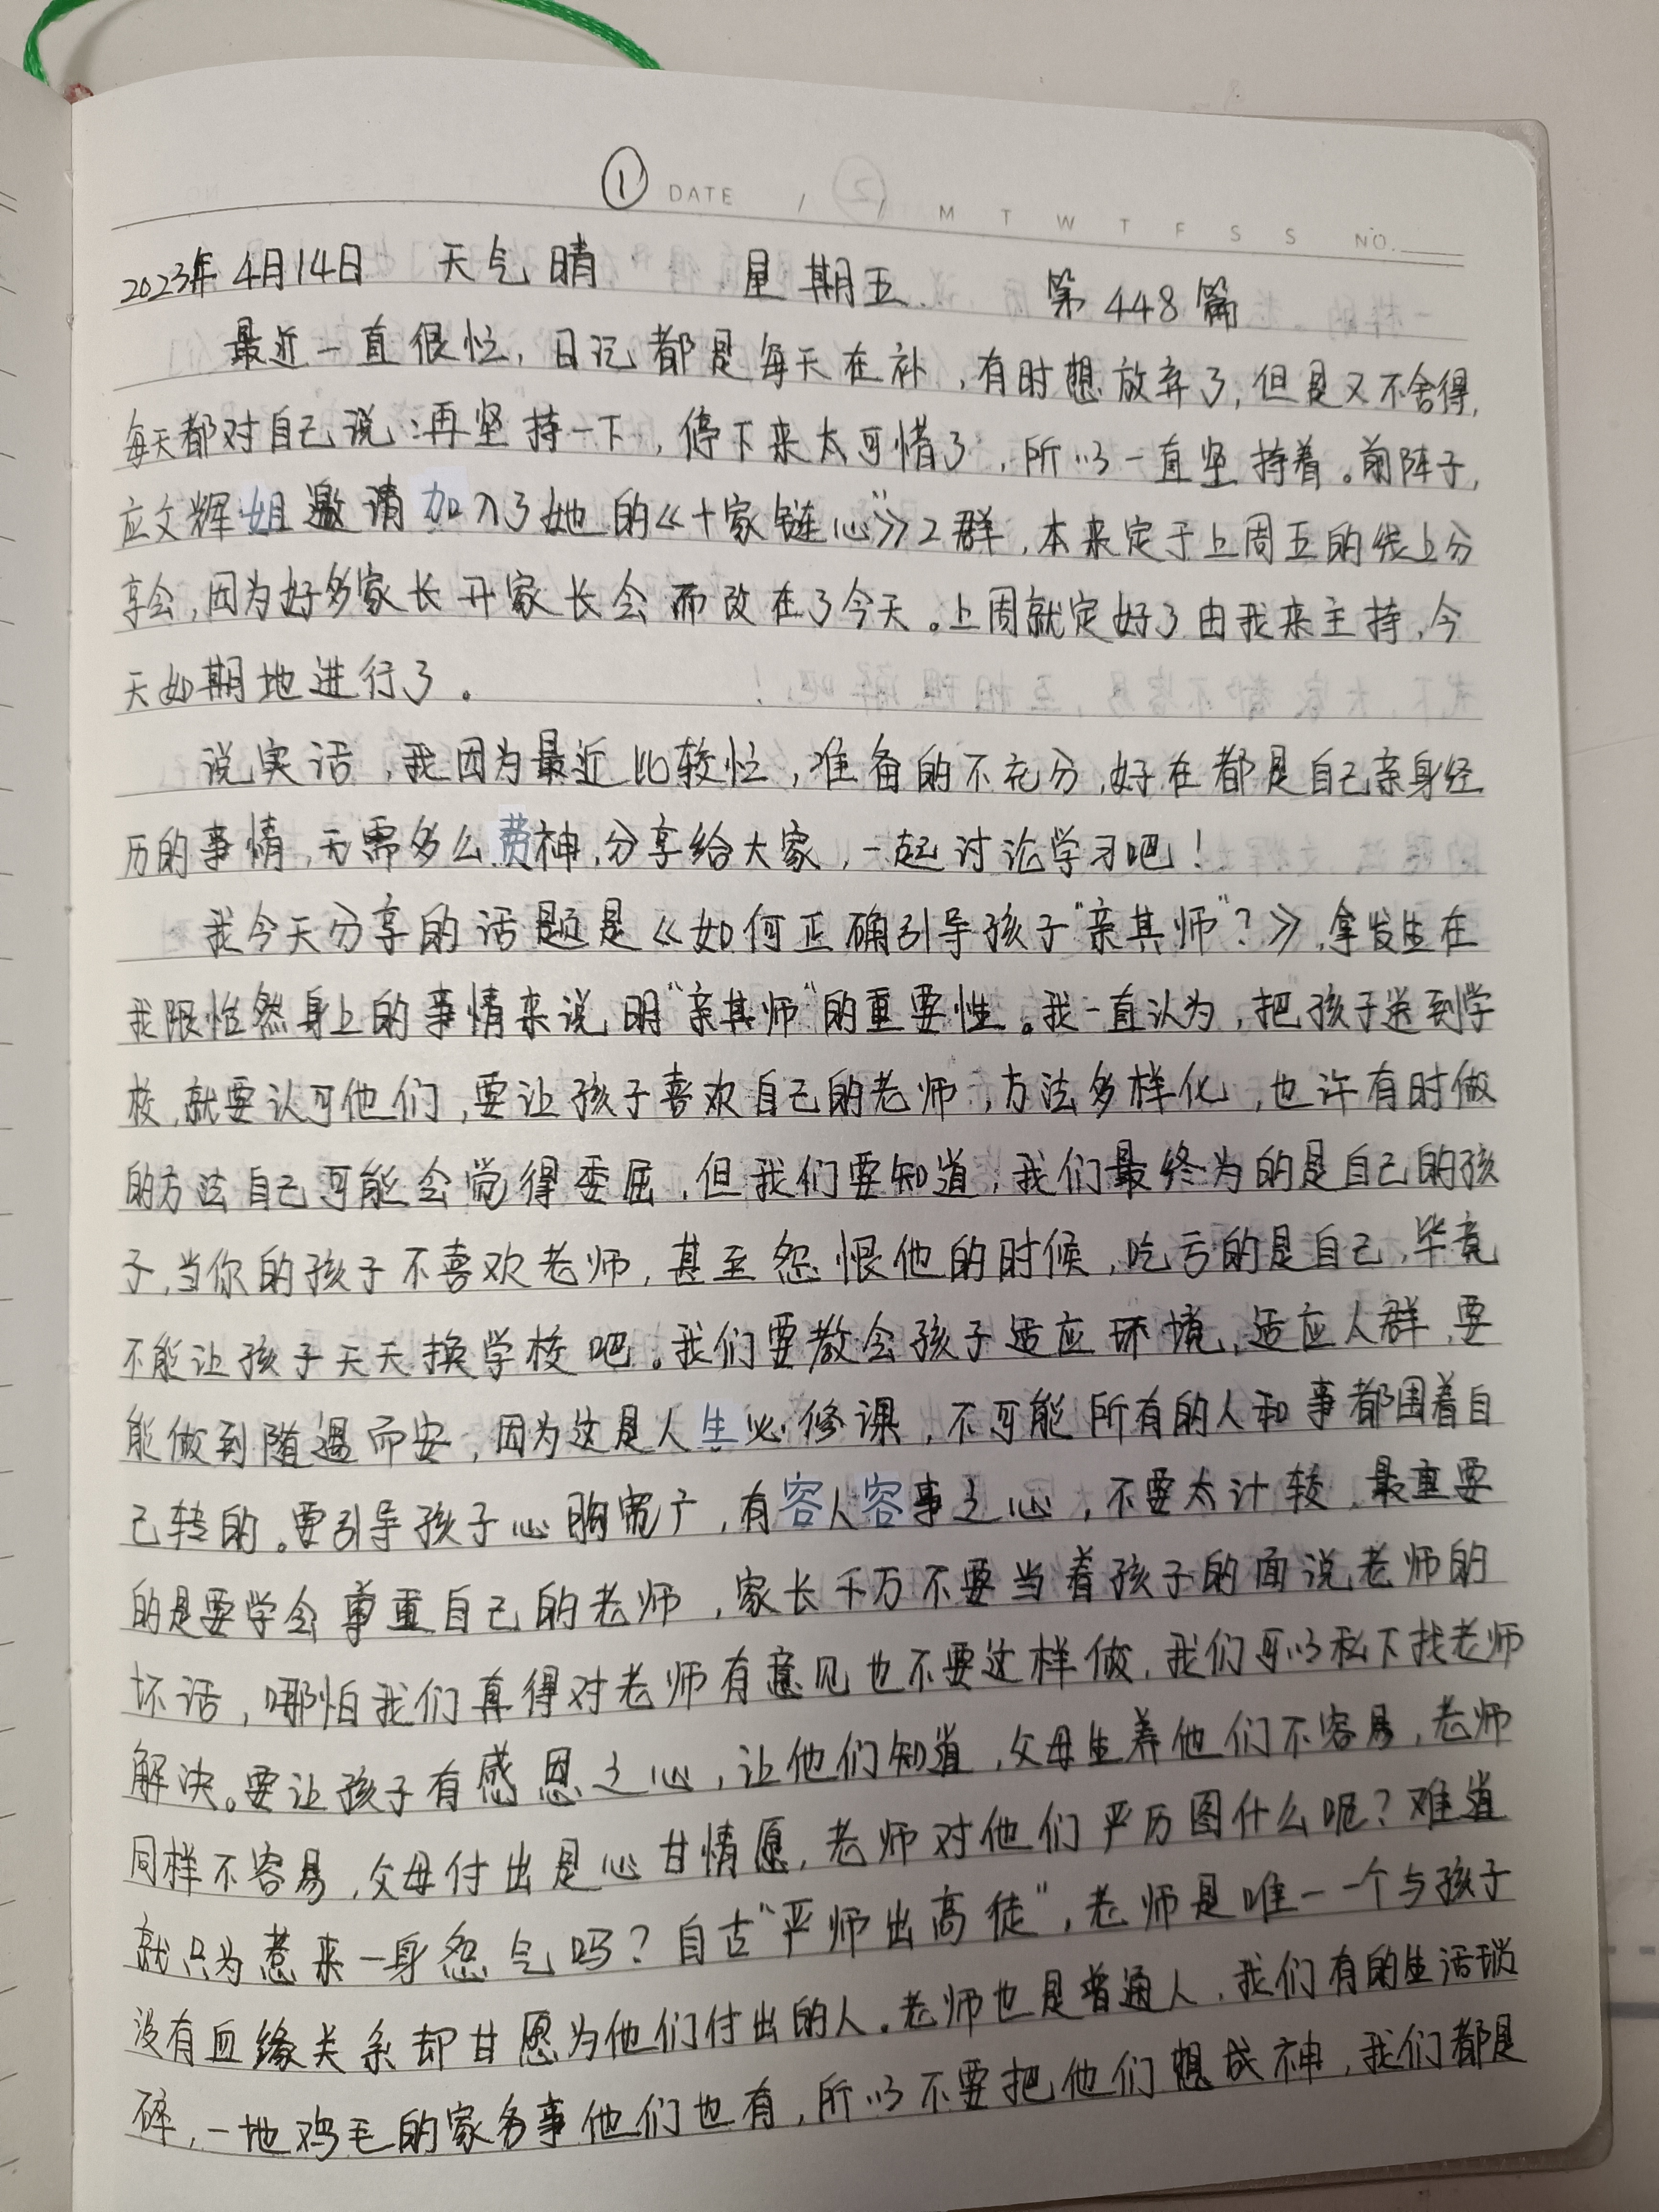 ① DATE / ② / M T W T F S S NO.
2023年4月14日 天气晴 星期五 第448篇
最近一直很忙，日记都是每天在补，有时想放弃了，但是又不舍得，
每天都对自己说：再坚持一下，停下来太可惜了，所以一直坚持着。前阵子，
应文辉姐邀请加入了她的《十家链心》2群，本来定于上周五的线上分
享会，因为好多家长开家长会而改在了今天。上周就定好了由我来主持，今
天如期地进行了。
说实话，我因为最近比较忙，准备的不充分，好在都是自己亲身经
历的事情，无需多么费神，分享给大家，一起讨论学习吧！
我今天分享的话题是《如何正确引导孩子“亲其师”？》，拿发生在
我跟怡然身上的事情来说明“亲其师”的重要性。我一直认为，把孩子送到学
校，就要认可他们，要让孩子喜欢自己的老师，方法多样化，也许有时做
的方法自己可能会觉得委屈，但我们要知道，我们最终为的是自己的孩
子，当你的孩子不喜欢老师，甚至怨恨他的时候，吃亏的是自己，毕竟
不能让孩子天天换学校吧。我们要教会孩子适应环境，适应人群，要
能做到随遇而安，因为这是人生必修课，不可能所有的人和事都围着自
己转的。要引导孩子心胸宽广，有容人容事之心，不要太计较，最重要
的是要学会尊重自己的老师，家长千万不要当着孩子的面说老师的
坏话，哪怕我们真得对老师有意见也不要这样做，我们可以私下找老师
解决。要让孩子有感恩之心，让他们知道，父母生养他们不容易，老师
同样不容易，父母付出是心甘情愿，老师对他们严历图什么呢？难道
就只为惹来一身怨气吗？自古“严师出高徒”，老师是唯一一个与孩子
没有血缘关系却甘愿为他们付出的人。老师也是普通人，我们有的生活琐
碎，一地鸡毛的家务事他们也有，所以不要把他们想成神，我们都是